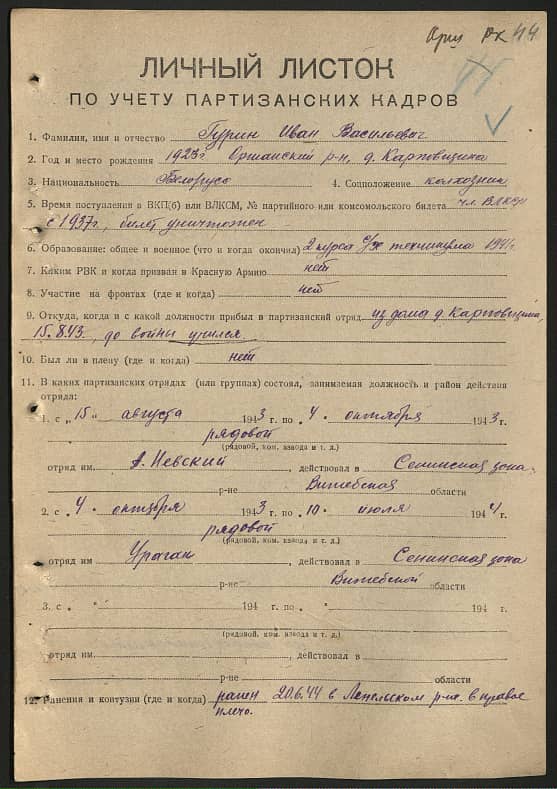 44
ЛИЧНЫЙ ЛИСТОК
ПО УЧЕТУ ПАРТИЗАНСКИХ КАДРОВ
1. Фамилия, имя и отчество Гурин Иван Васильевич
2. Год и место рождения 1923г Оршанский р-н, д. Карповщина
3. Национальность Белорусь 4. Соцположение колхозник
5. Время поступления в ВКП(б) или ВЛКСМ, № партийного или комсомольского билета чл. ВЛКСМ
с 1937г, билет уничтожен
6. Образование: общее и военное (что и когда окончил) 2 курса с/хоз техникума 1941г.
7. Каким РВК и когда призван в Красную Армию нет
8. Участие на фронтах (где и когда) нет
9. Откуда, когда и с какой должности прибыл в партизанский отряд из дома д. Карповщина,
15.8.43, до войны учился.
10. Был ли в плену (где и когда) нет
11. В каких партизанских отрядах (или группах) состоял, занимаемая должность и район действия
отряда:
1. с „15 „ августа 1943 г. по „4 „ октября 1943 г.
рядовой
(рядовой, ком. взвода и т. д.)
отряд им. А. Невский, действовал в Сенинская зона
р-не Витебская области
2. с „4 „ октября 1943 г. по „10 „ июля 1944 г.
рядовой
(рядовой, ком. взвода и т. д.)
отряд им Ураган, действовал в Сенинская зона
р-не Витебской области
3. с „ „ 194 г. по „ „ 194 г.
(рядовой, ком. взвода и т. д.)
отряд им. , действовал в
р-не области
12. Ранения и контузии (где и когда) ранен 20.6.44 в Лепельском р-не в правое
плечо.